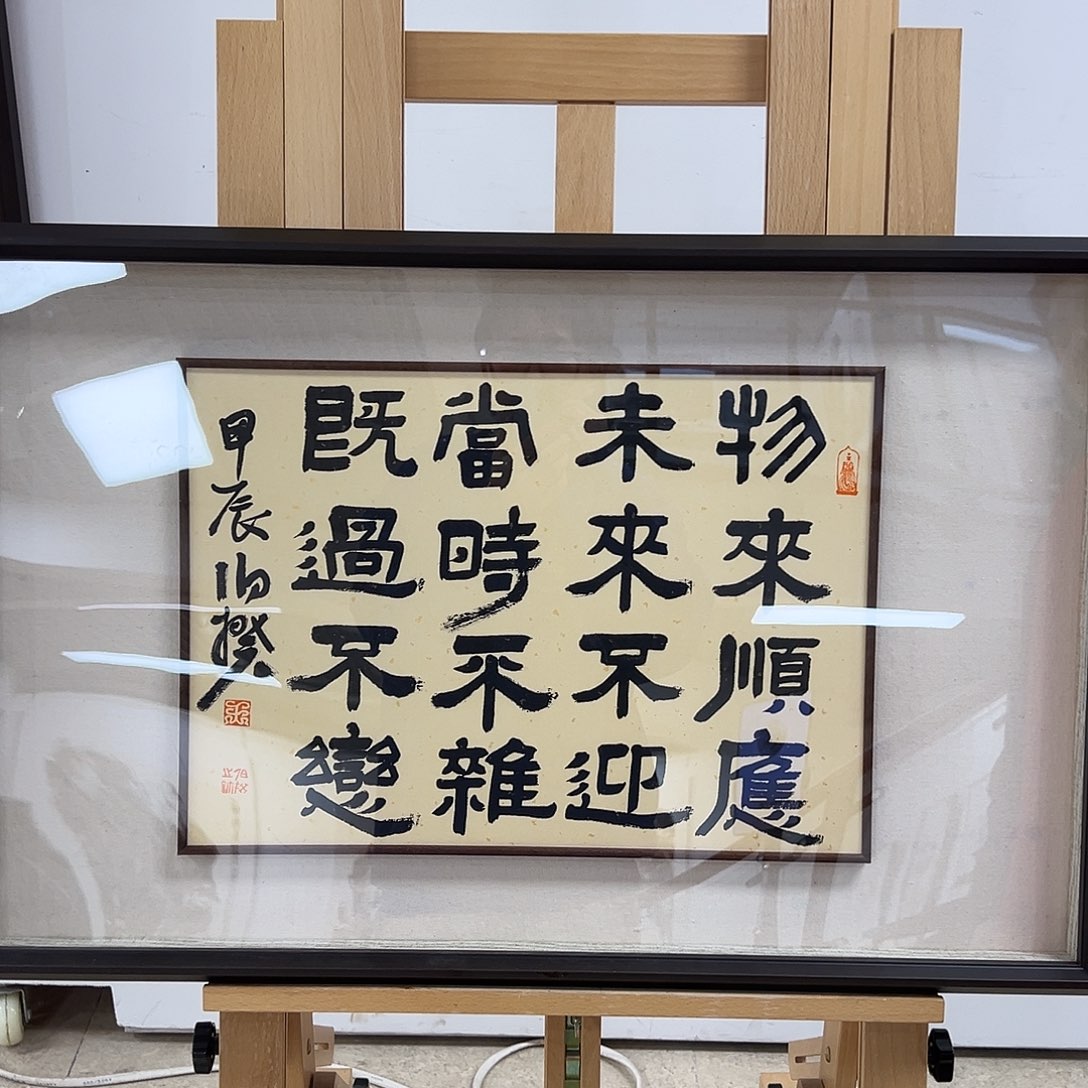 物來順應
未來不迎
當時不雜
既過不戀
甲辰